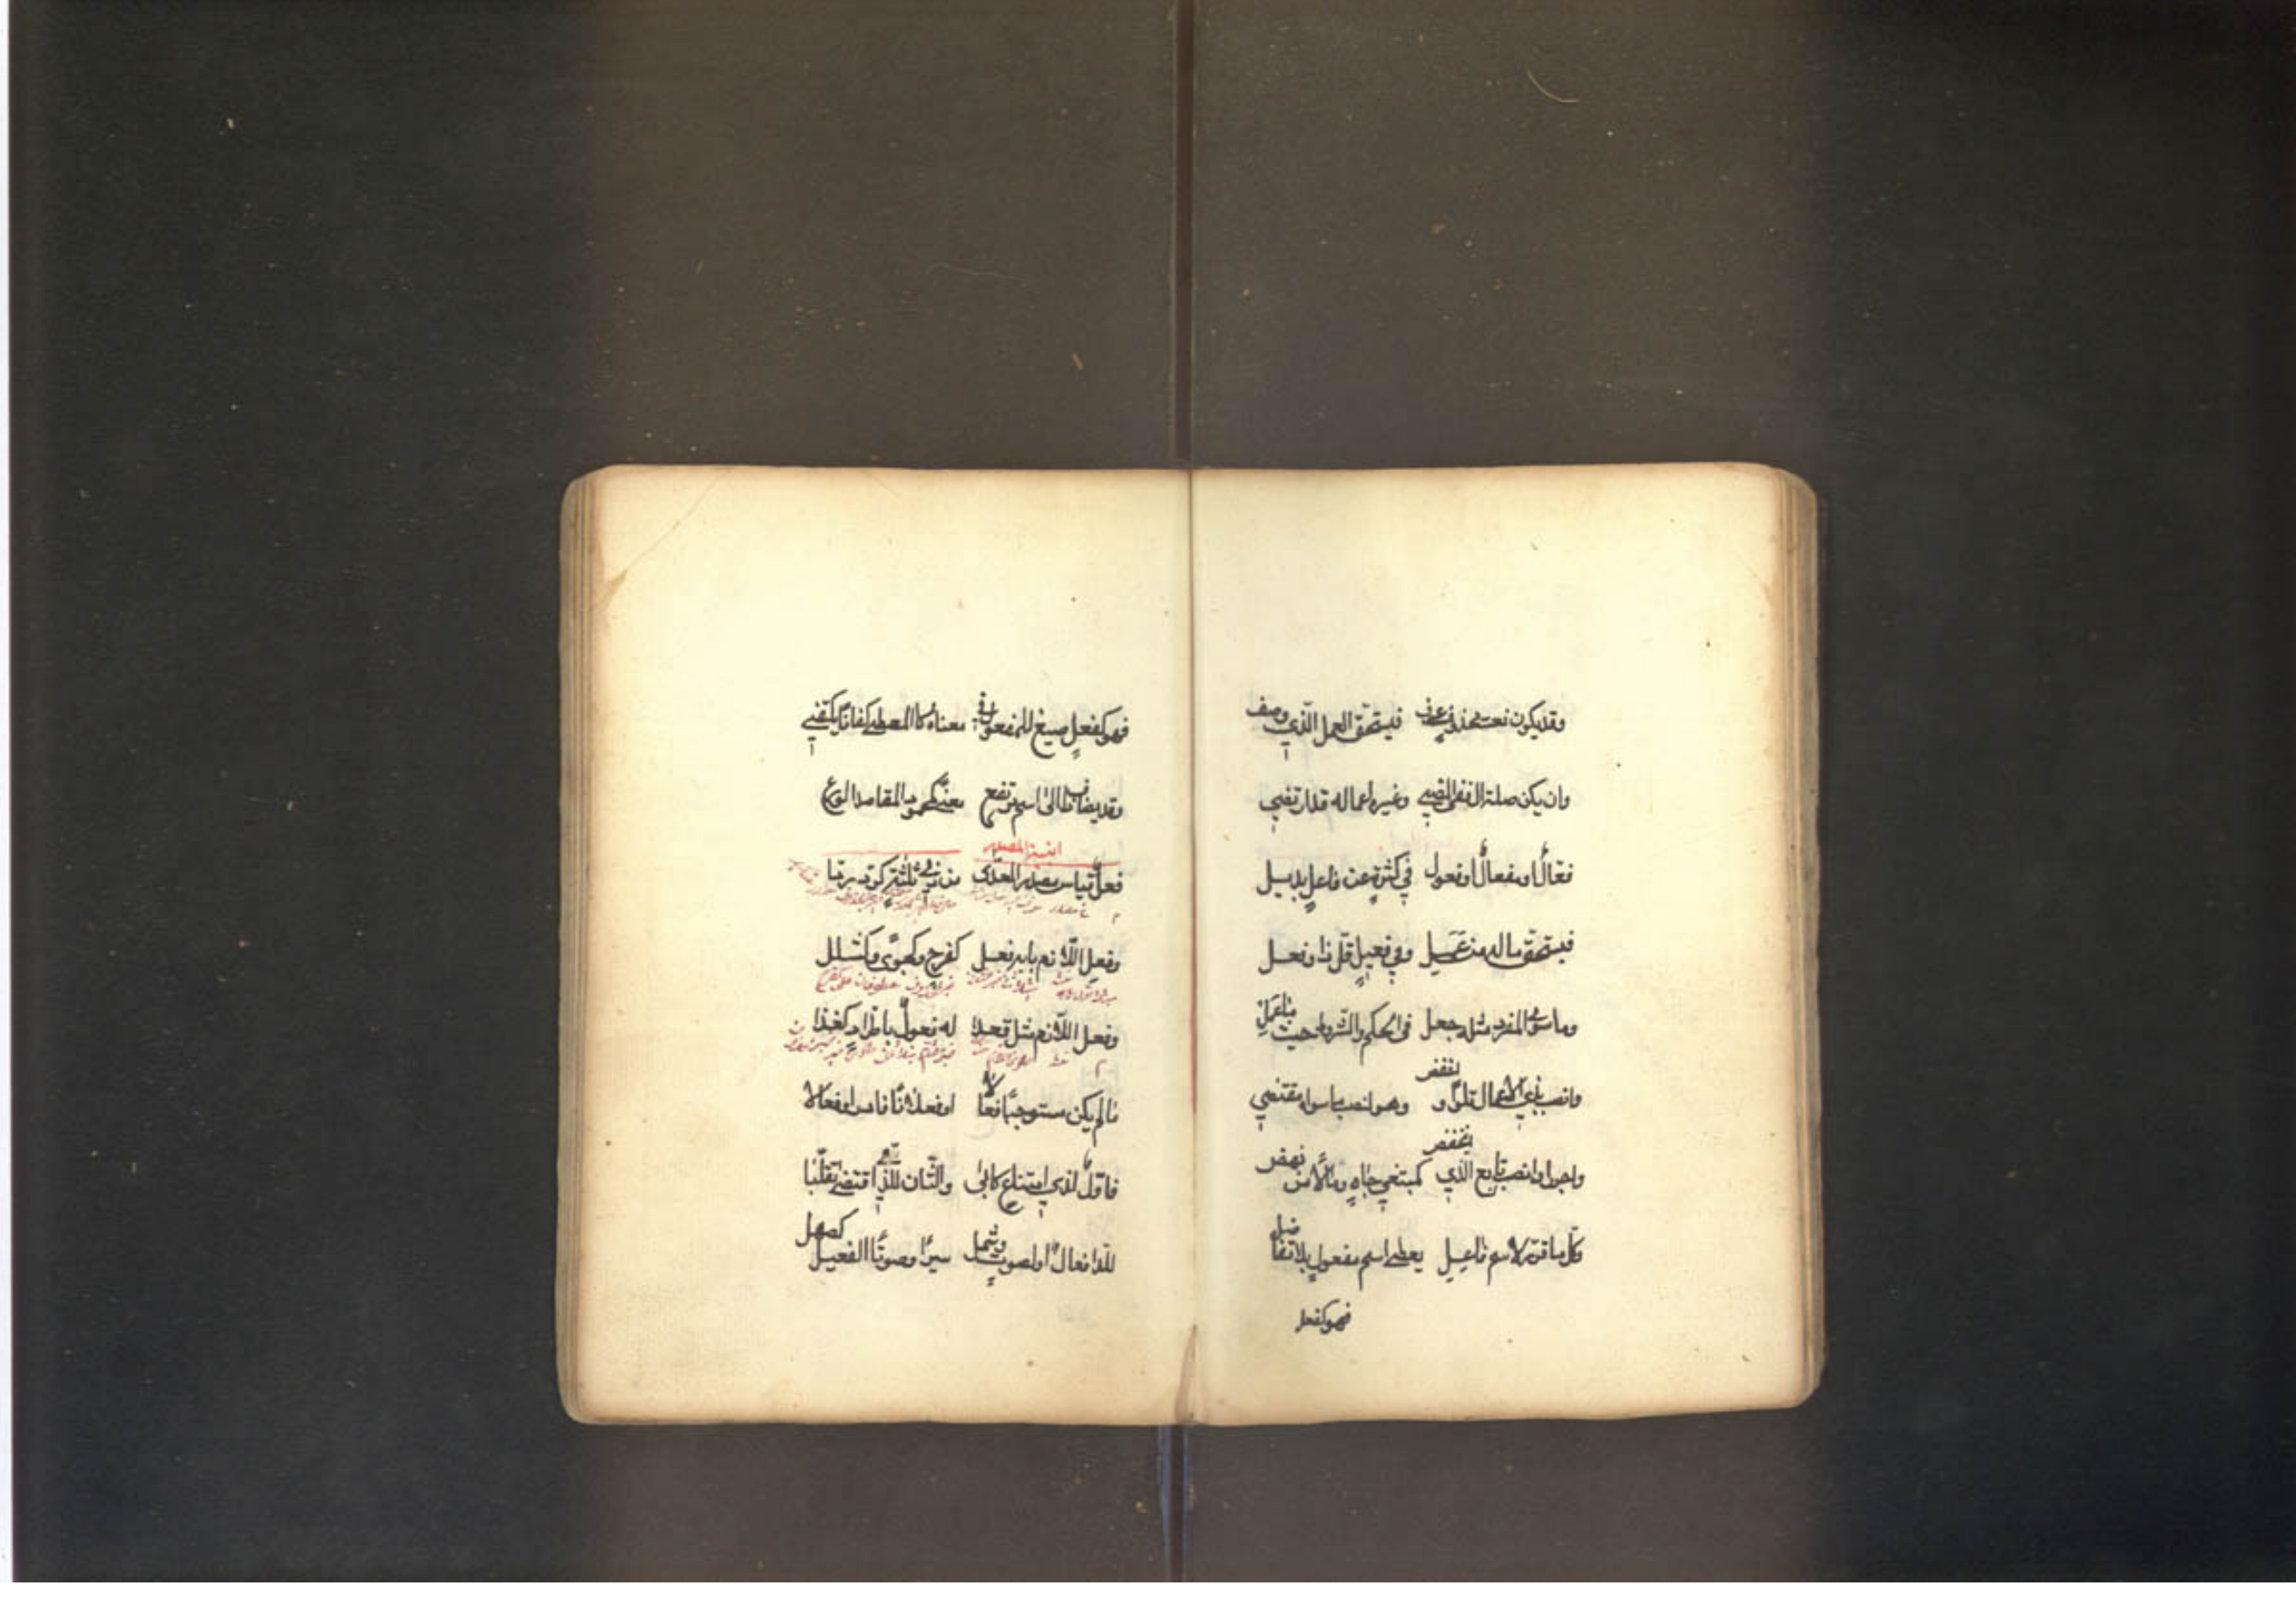 وقد يكون نعت محذوف عرف فيستحق العمل الذي وصف
وان يكن صلة ال ففى المضي وغيره اعماله قد ارتضي
فعال او مفعال او فعول في كثرة عن فاعل بديل
فيستحق ماله من عمل وفي فعيل قل ذا وفعل
وما سوى المفرد مثله جعل في الحكم والشروط حيث ما عمل
وانصب بذي الاعمال تلوا واخفض وهو لنصب ما سواه مقتضي
واجرر او انصب تابع الذي انخفض كمبتغي جاه ومالا من نهض
وكل ما قرر لاسم فاعل يعطى اسم مفعول بلا تفاضل
فهو كفعل
فهو كفعل صيغ للمفعول في معناه كالمعطى كفافا يكتفي
وقد يضاف ذا الى اسم مرتفع معنى كمحمود المقاصد الورع
ابنية المصدر
فعل قياس مصدر المعدى من ذي ثلثة كرد ردا
وفعل اللازم بابه فعل كفرح وكجوى وكشلل
وفعل اللازم مثل قعدا له فعول باطراد كغدا
ما لم يكن مستوجبا فعالا او فعلانا فادر او فعالا
فاول لذي امتناع كابى والثان للذي اقتضى تقلبا
للدا فعال او لصوت وشمل سيرا وصوتا الفعيل كصهل